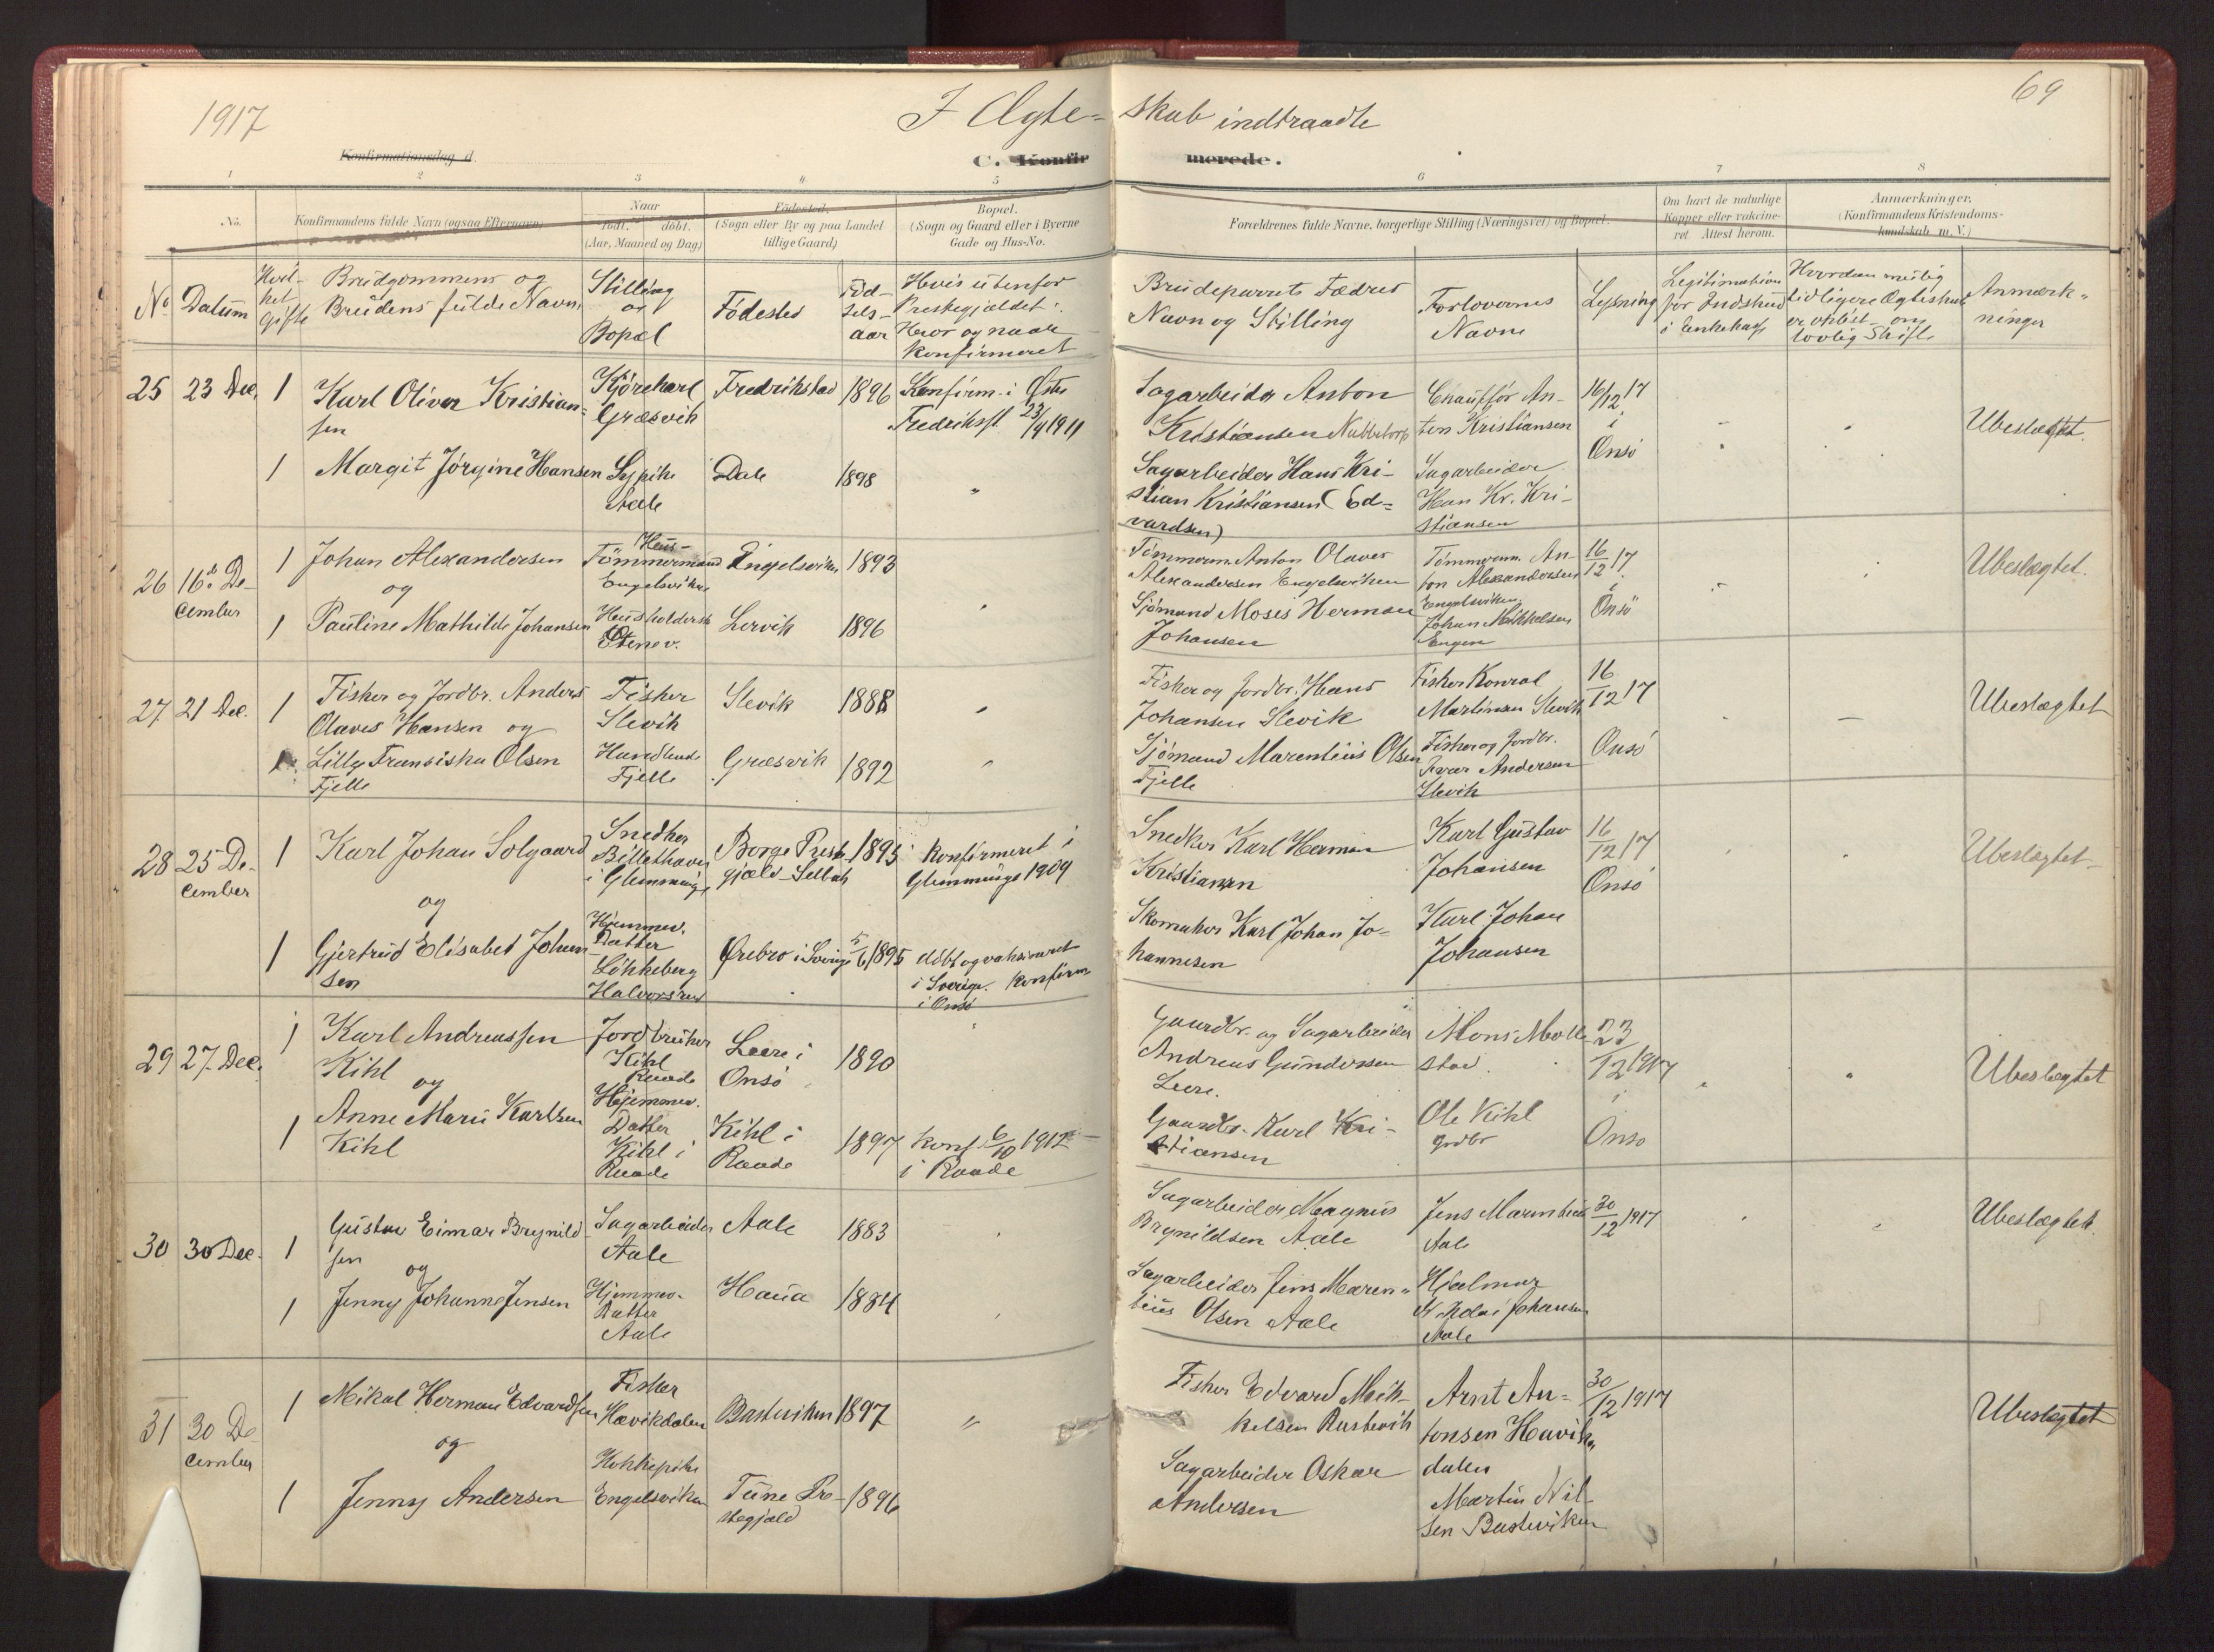 1917
I Ægte=
skab indtraadte
69
Konfirmationsdag d.
C. Konfir
merede.
1 2 3 4 5
6 7 8
No.
Konfirmandens fulde Navn (ogsaa Efternavn)
Naar
født. døbt.
(Aar, Maaned og Dag)
Fødested.
(Sogn eller By og paa Landet
tillige Gaard)
Bopæl.
(Sogn og Gaard eller i Byerne
Gade og Hus-No.
Forældrenes fulde Navne, borgerlige Stilling (Næringsvei) og Bopæl.
Om havt de naturlige
Kopper eller vakcine-
ret. Attest herom.
Anmærkninger.
(Konfirmandens Kristendoms-
kundskab m. V.)
No
Datum
Hvil-
ket
Gifte
Brudgommens og
Brudens fulde Navn
Stilling
og
Bopæl
Födested
Föd-
sels-
aar
Hvis utenfor
Prestegjældet:
Hvor og naar
konfirmeret
Brudeparrets Fædres
Navn og Stilling
Forlovernes
Navne
Lysning
Legitimation
for Indskud
i Enkekasse
Hvordan mulig
tidligere Ægteskab
er oplöst – om
lovlig Skifte
Anmærk=
ninger
25 23 Dec. 1
Karl Oliver Kristian=
sen
Kjörekarl
Græsvik
Fredrikstad
1896
Konfirm. i Östre
Fredrikst 23/4 1911
Sagarbeider Anton
Kristiansen Nabbetorp
Chaufför An-
ton Kristiansen
16/12 17
i
Onsö
Ubeslægtet.
1
Margit Jörgine Hansen
Sypike
Aale
Dale
1898
"
Sagarbeider Hans Kri-
stian Kristiansen (Ed=
vardsen)
Sagarbeider
Han Kr. Kri-
stiansen
26 16de De-
cember
1
Johan Alexandersen
og
Hus-
Tömmermand
Engelsviken
Engelsviken
1893
Tömmerm. Anton Olaves
Alexandersen Engelsviken
Tömmerm. An-
ton Alexandersen
Engelsviken
16/12 17
i
Onsö
Ubeslægtet.
1
Pauline Mathilde Johansen
Lervik
1896
Sjömand Moses Herman
Johansen
Johan Mikkelsen
Engen
27 21 Dec. 1
Fisker og Jordbr. Anders
Olaves Hansen og
Fisker
Slevik
Slevik
1888
Fisker og Jordbr. Hans
Johansen Slevik
Fisker Konrad
Martinsen Slevik
16/12 17
Onsö
Ubeslægtet
Lilly Fransiska Olsen
Fjelle
Fjelle
Græsvik
1892
Sjömand Marentius Olsen
Fjelle
Fisker og Jordbr.
Ivar Andersen
Slevik
28 25 De-
cember
1
Karl Johan Solgaard
og
Snedker
i Glemminge
Borge Preste-
gjæld – Selbak
1895
konfirmeret i
Glemminge 1909
Snedker Karl Herman
Kristiansen
Karl Gustav
Johansen
16/12 17
Onsö
Ubeslægtet
1
Gjertrud Elisabet Johan-
sen
Hjemmev.
Datter
Lökkeberg
Halvorsrud
Örebro i Sverige
5/6 1895
döbt og vaksineret
i Sverige. Konfirm
i Onsö
Skomaker Karl Johan Jo=
hannesen
Karl Johan
Johansen
29 27 Dec. 1
Karl Andreassen
Kihl
og
Jordbruker
Kihl
Raade
Leere i
Onsö
1890
Gaardbr. og Sagarbeider
Andreas Gundersen
Leere.
Mons Molle
stad
23/12 1917
i
Onsö
Ubeslægtet
1
Anne Marie Karlsen
Kihl
Hjemmev.
Datter
Kihl i
Raade
Kihl i
Raade
1897
konf. 6/10 1912
i Raade
Gaardbr. Karl Kri-
stiansen
Ole Kihl
grdbr
30 30 Dec. 1
Gustav Eimar Brynild-
sen
og
Sagarbeider
Aale
Aale
1883
Sagarbeider Magnus
Brynildsen Aale
Jens Marentius
Aale
30/12 1917
Ubeslægtet.
1
Jenny Johanne Jensen
Hjemmev.
Datter
Aale
Haua
1884
Sagarbeider Jens Maren=
tius Olsen Aale
Hjalmar
Nikolai Johansen
Aale
31 30 De-
cember
1
Mikal Herman Edvardsen
og
Fisker
Havikdalen
Basteviken
1897
"
Fisker Edvard Mik-
kelsen Bastevik
Arnt An=
tonsen Havik
dalen
30/12 1917
Ubeslægtet
1
Jenny Andersen
Kokkepike
Engelsviken
Tune Pre-
stegjæld
1896
Sagarbeider Oskar
Andersen
Martin Nil-
sen Basteviken